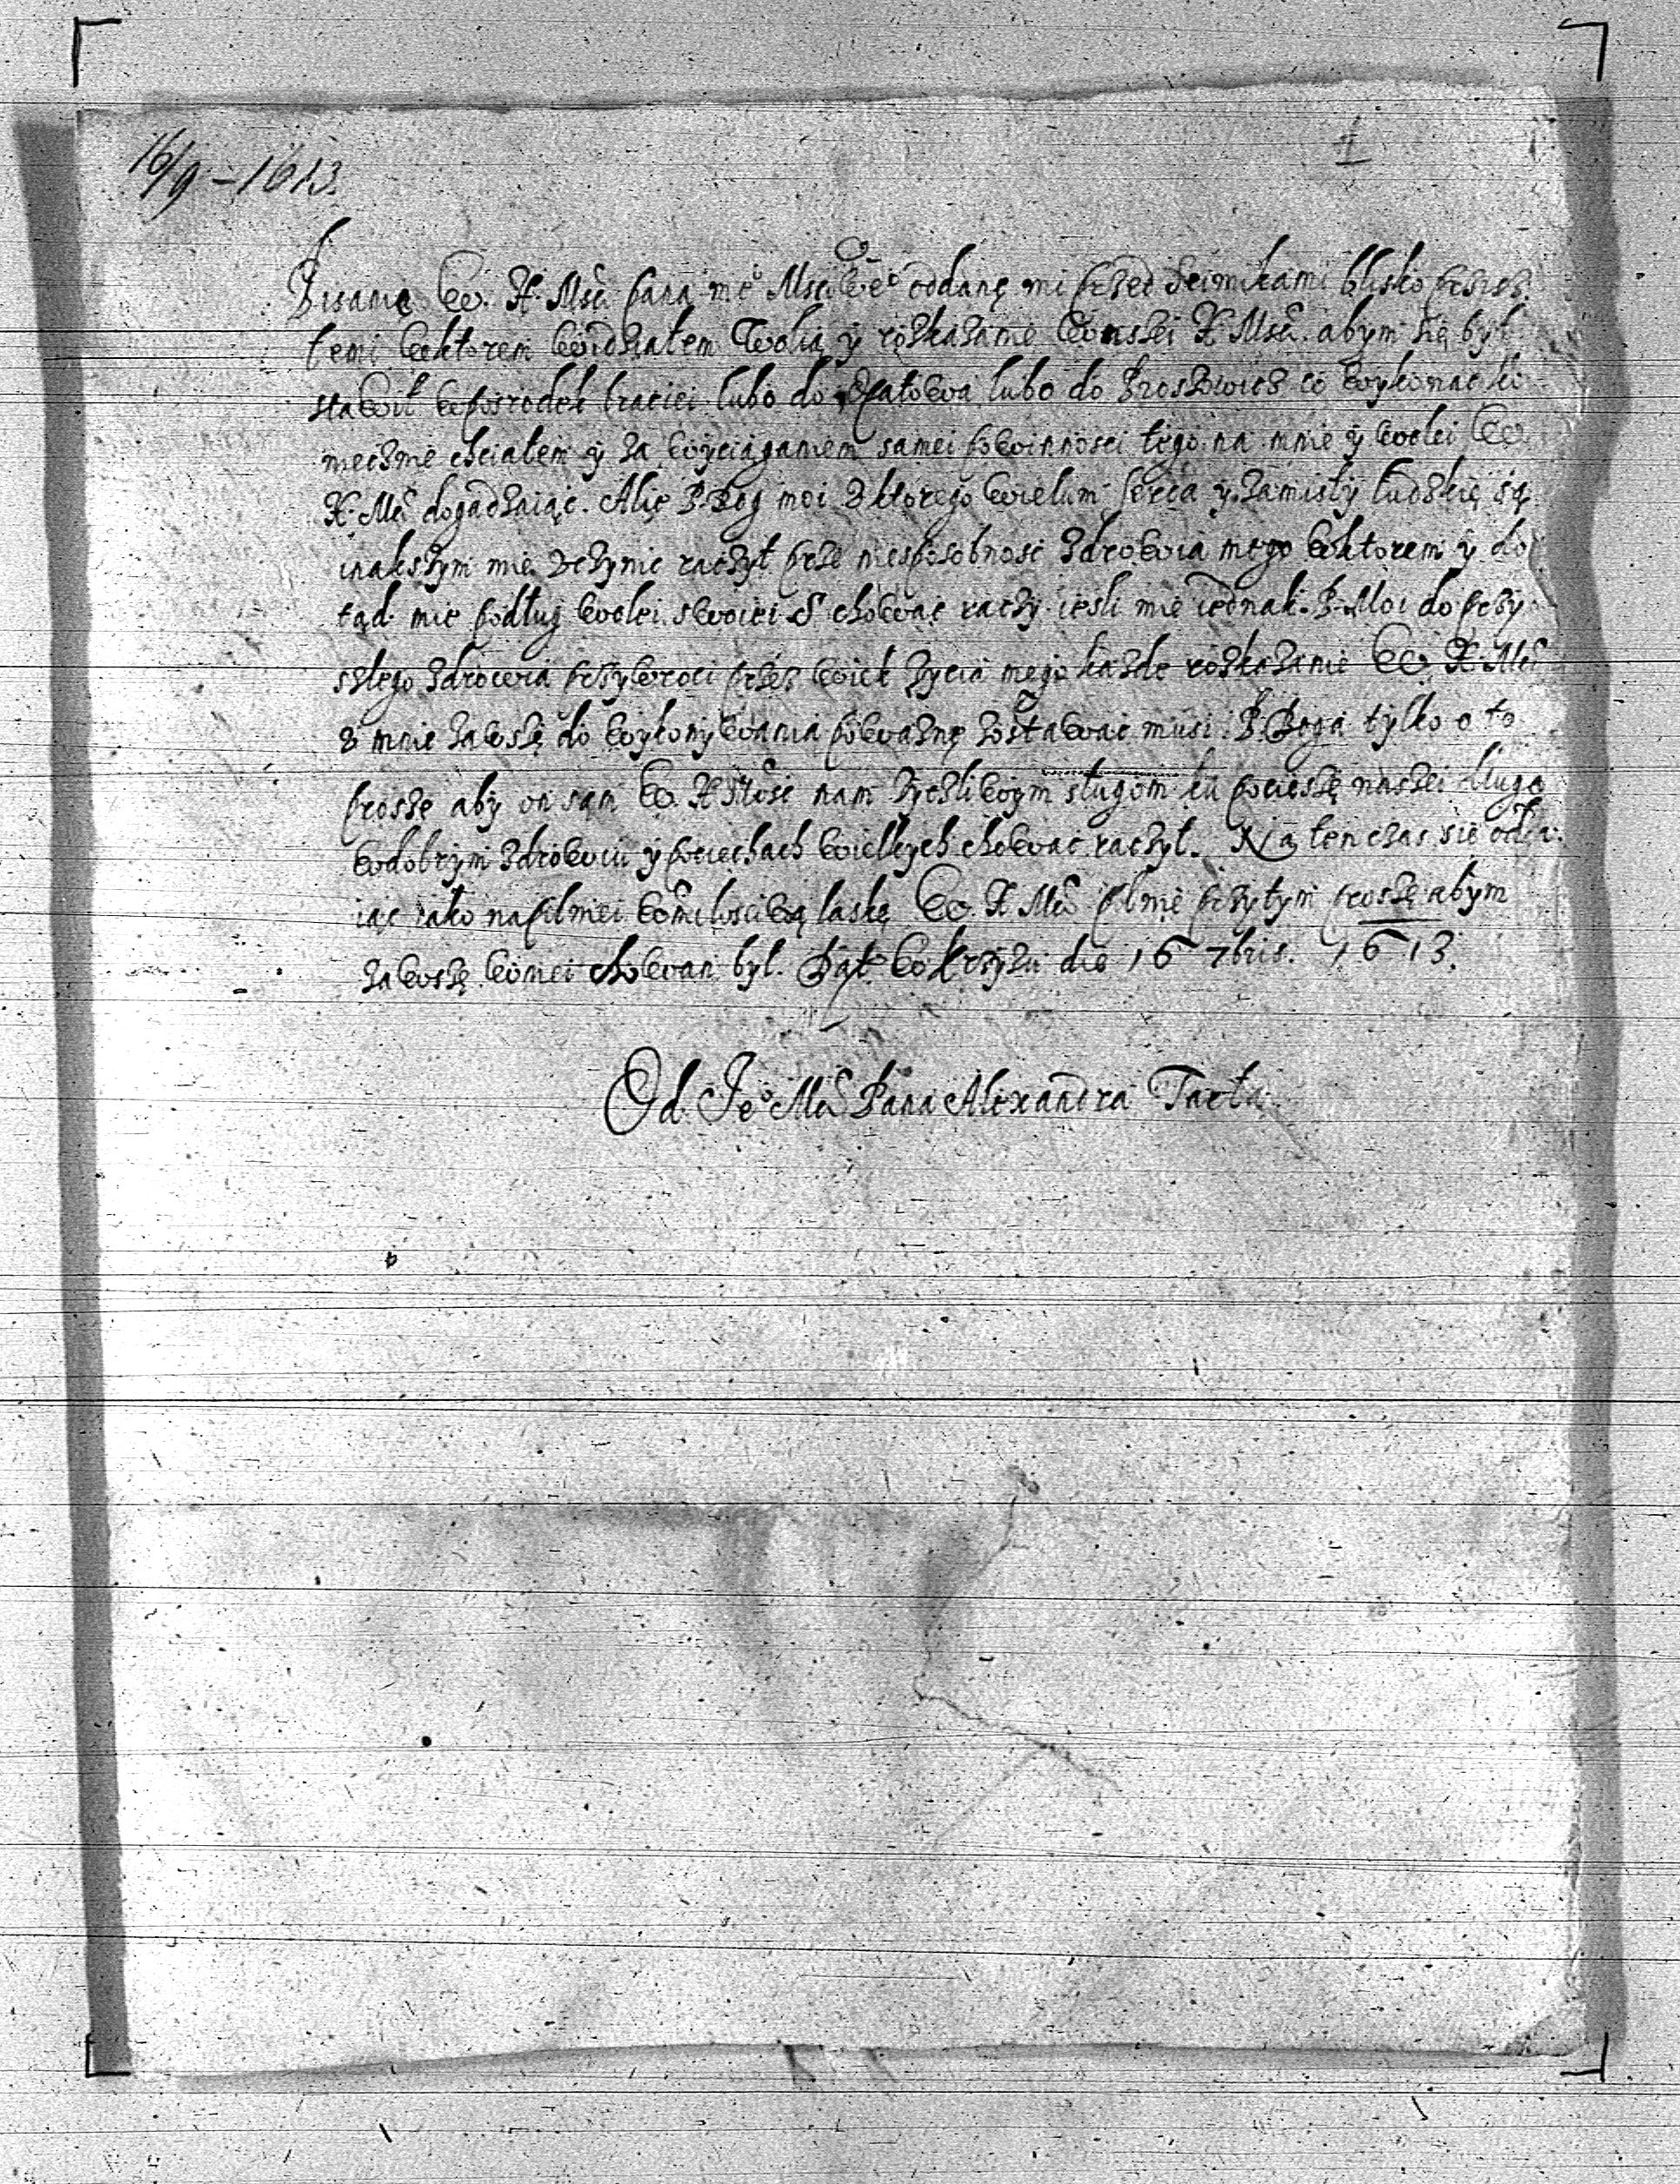 16/9 – 1613.
1
Pisanie W. X. Msći pana me° Msciwe° oddane mi przed Seimikami blisko przesz
łemi wktorem widziałem Wolią y roskazanie Waszei X. Mśći. abym się był
stawił wposrodek braciei lubo do Opatowa lubo do Proszowicz co wykonac ko
niecznie chciałem y za wyciąganiem samei powinnosci tego na mnie y wolei W.
X. Mći dogadzaiąc. Alie P. Bog moi z ktorego wielum serca y zamisły ludzkię są
inakszym mie uczynic raczył prze niesposobnosc zdrowia mego wktorem y do
tąd mie podług wolei swoiei chowac raczy iesli mie iednak P. Moi do przy
szlego zdrowia przywroci przez wiek zycia mego kazde roskazanie W. X. Mći
v mnie zawszę do wykonywania powaznę zostawac musi. P. Boga tylko o to
proszę aby on sąm W. X. Mośc nam zyczliwym sługom ku pociesze naszei długo
wdobrym zdrowiu y pociechach wielkych chowac raczył. Na ten czas się odda
iąc iako napilniei wmiłosciwą laskę W. X. Mći pilnie przytym proszę abym
zawszę wniei chowan był. Dat. w Krzyzu die 16 7bris. 1613.
Od Je° Mći Pana Alexandra Tarła